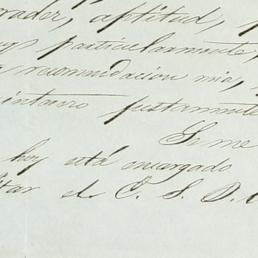 rador, aptitud,
particularmente,
recomendacion mia,
justamente
Se me
hoy está encargado
de E. S. D.